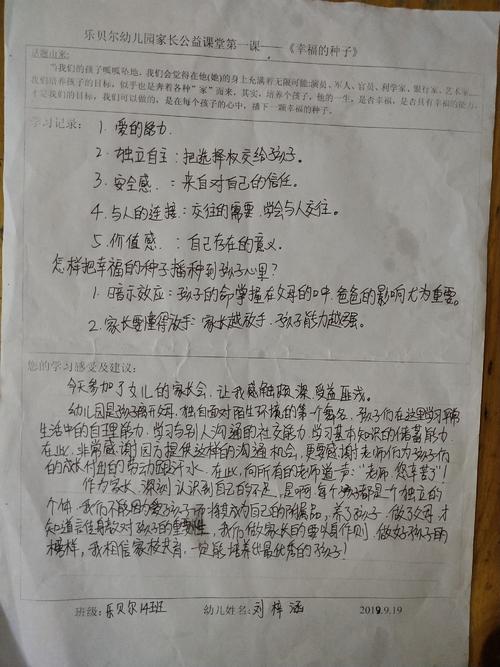 乐贝尔幼儿园家长公益课堂第一课——《幸福的种子》
话题由来:
当我们的孩子呱呱坠地，我们会觉得在他(她)的身上充满着无限可能:演员、军人、官员、科学家、银行家、艺术家…
我们培养孩子的目标，似乎也是奔着各种“家”而来，其实，培养个孩子，他的一生，是否幸福，是否具有幸福的能力，
才是我们的目标，我们可以做的，是在每个孩子的心中，播下一颗幸福的种子。
学习记录:
1. 爱的能力.
2. 独立自主：把选择权交给孩子。
3. 安全感．：来自对自己的信任。
4. 与人的连接：交往的需要．学会与人交往。
5. 价值感．：自己存在的意义。
怎样把幸福的种子播种到孩子心里？
1. 暗示效应：孩子的命掌握在父母的口中．爸爸的影响尤为重要。
2. 家长要懂得放手：家长越放手．孩子能力越强。
您的学习感受及建议:
今天参加了女儿的家长会，让我感触颇深，受益匪浅。
幼儿园是孩子离开母，独自面对陌生环境的第一个，孩子们在这里学习日常
生活中的自理能力．学习与别人沟通的社交能力．学习基本知识的储蓄能力．
在此，非常感谢园方提供这样的沟通机会，更要感谢老师们为孩子们
的成长付出的劳动跟汗水．在此，向所有的老师道一声：“老师．您辛苦了”！
作为家长．深刻认识到自己的不足，是啊．每个孩子都是一个独立的
个体．我们不能因为爱孩子而将变成为自己的附属品，养了孩子．做了父母．才
知道言传身教对孩子的重要性，我们做家长的要以身作则．做好孩子的
榜样，我相信家校共育，一定能培养出最优秀的孩子！
班级: 乐贝尔14班 幼儿姓名: 刘梓涵 2019.9.19